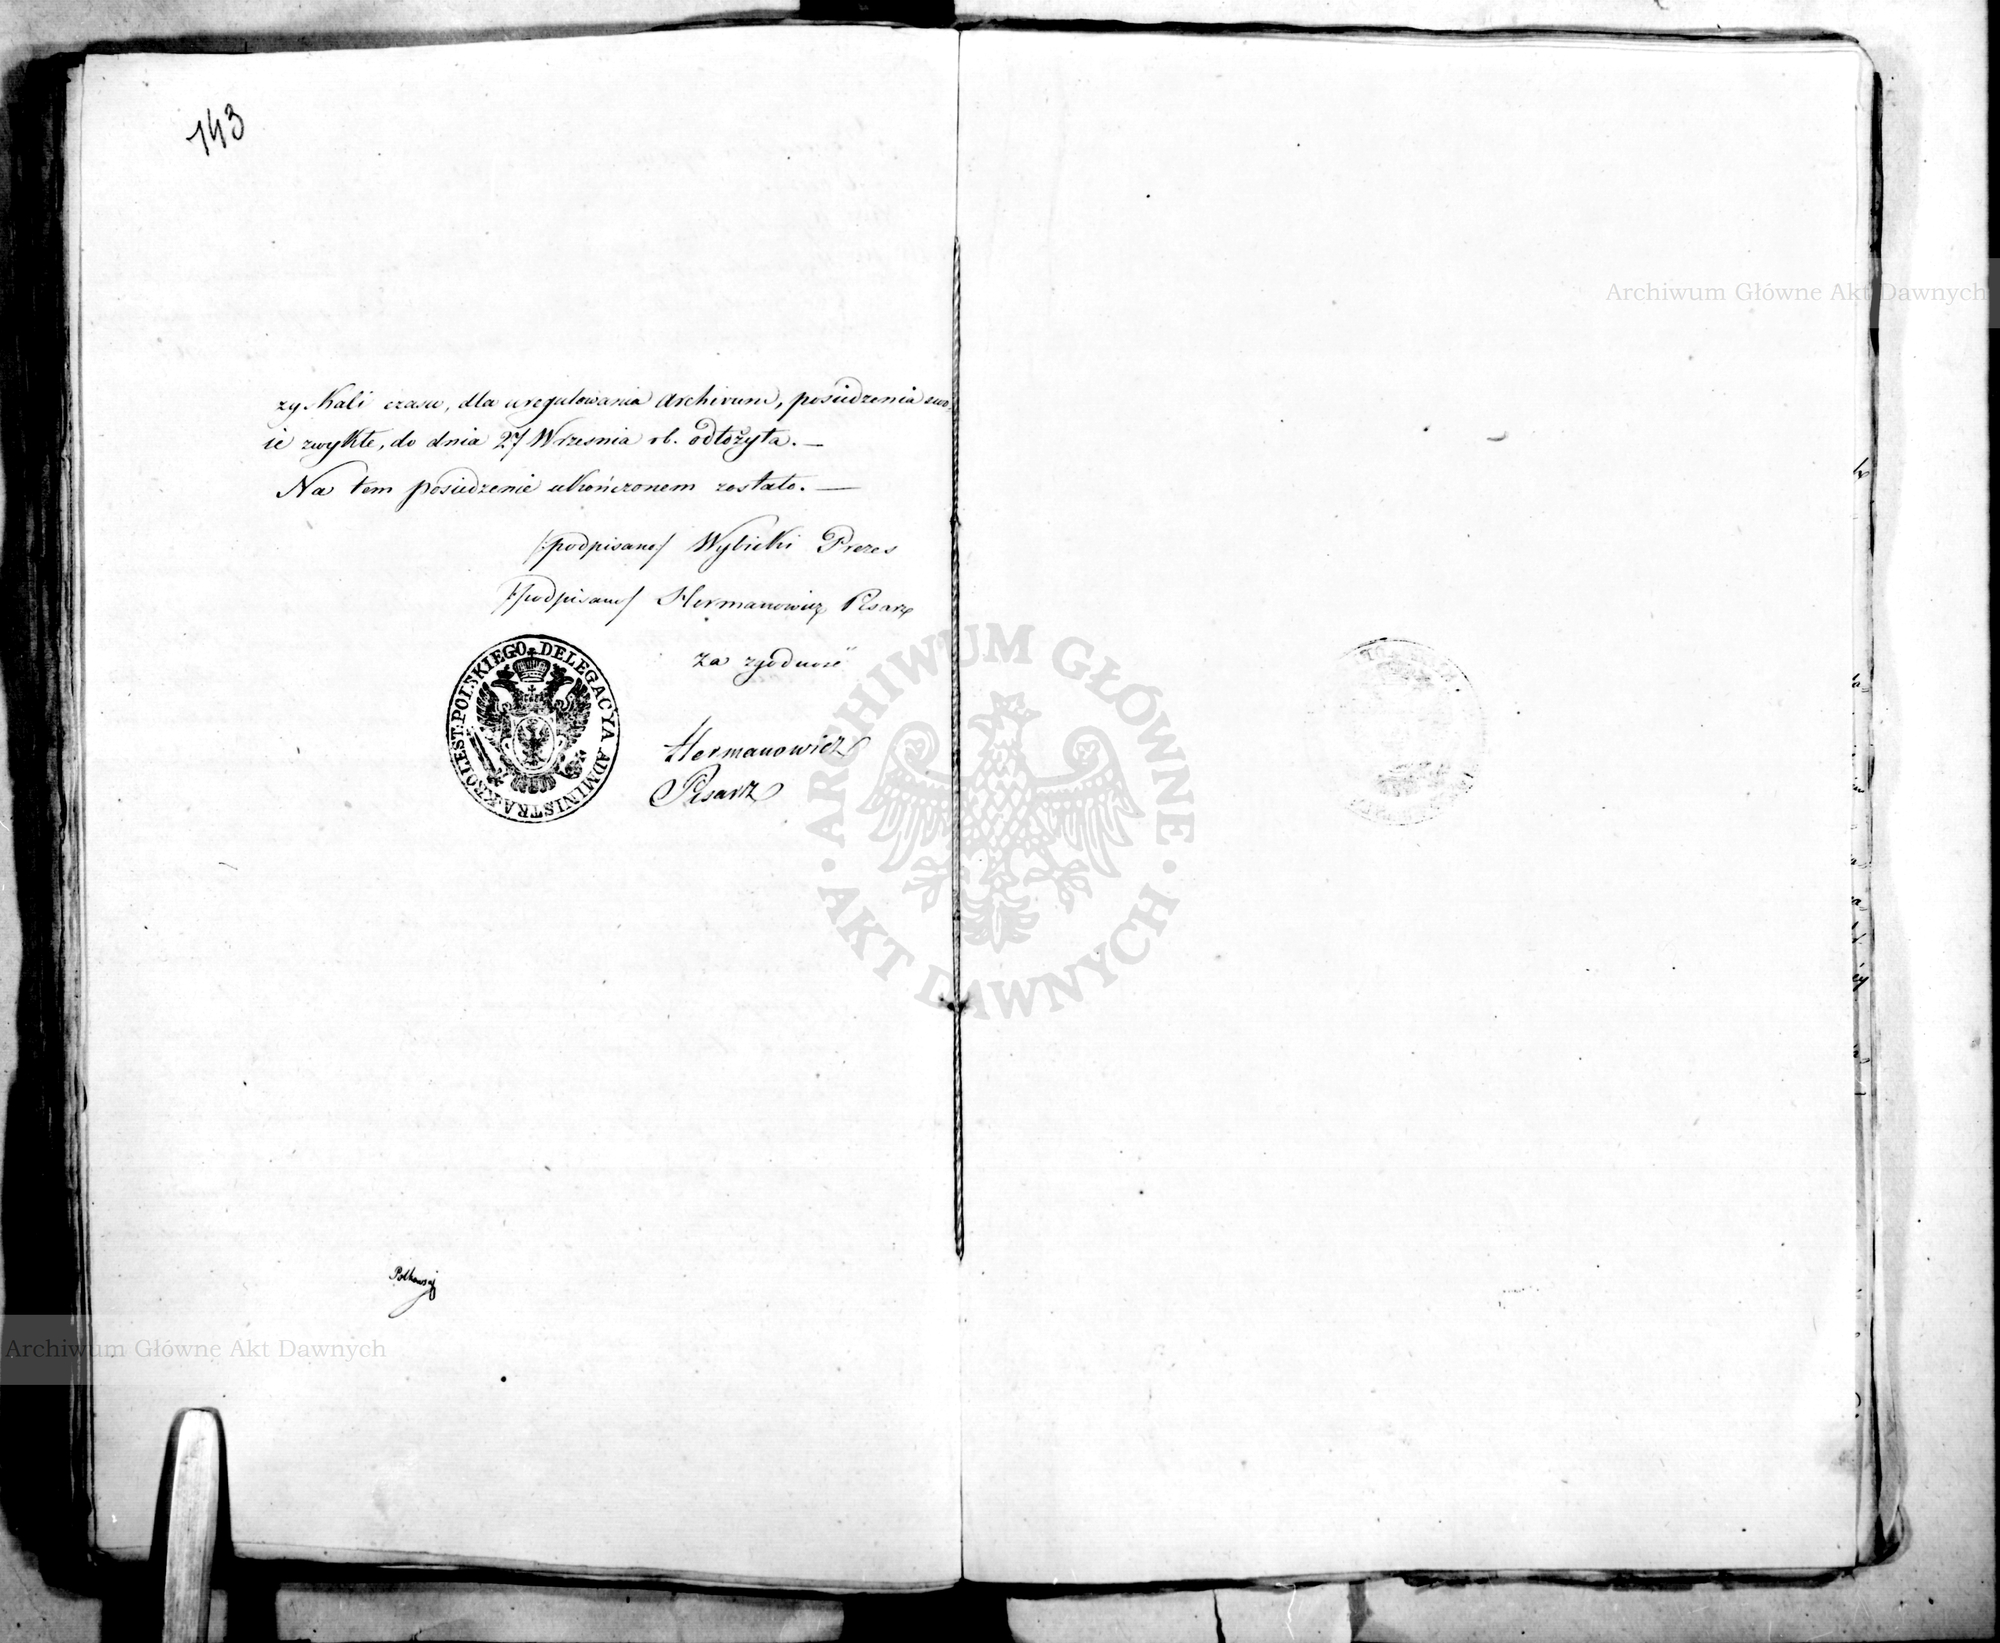 143
zyskali czasu, dla uregulowania Archivum, posiedzenia swo-
ie zwykłe, do dnia 27 Września rb. odłożyła. —
Na tem posiedzenie ukończonem zostało. —
/:podpisano/ Wybicki Prezes
/:podpisano/ Hermanowicz Pisarz
za zgodność
Hermanowicz
Pisarz
KROLEST: POLSKIEGO DELEGACYA ADMINISTRA:
Archiwum Główne Akt Dawnych
ARCHIWUM GŁÓWNE · AKT DAWNYCH ·
Archiwum Główne Akt Dawnych